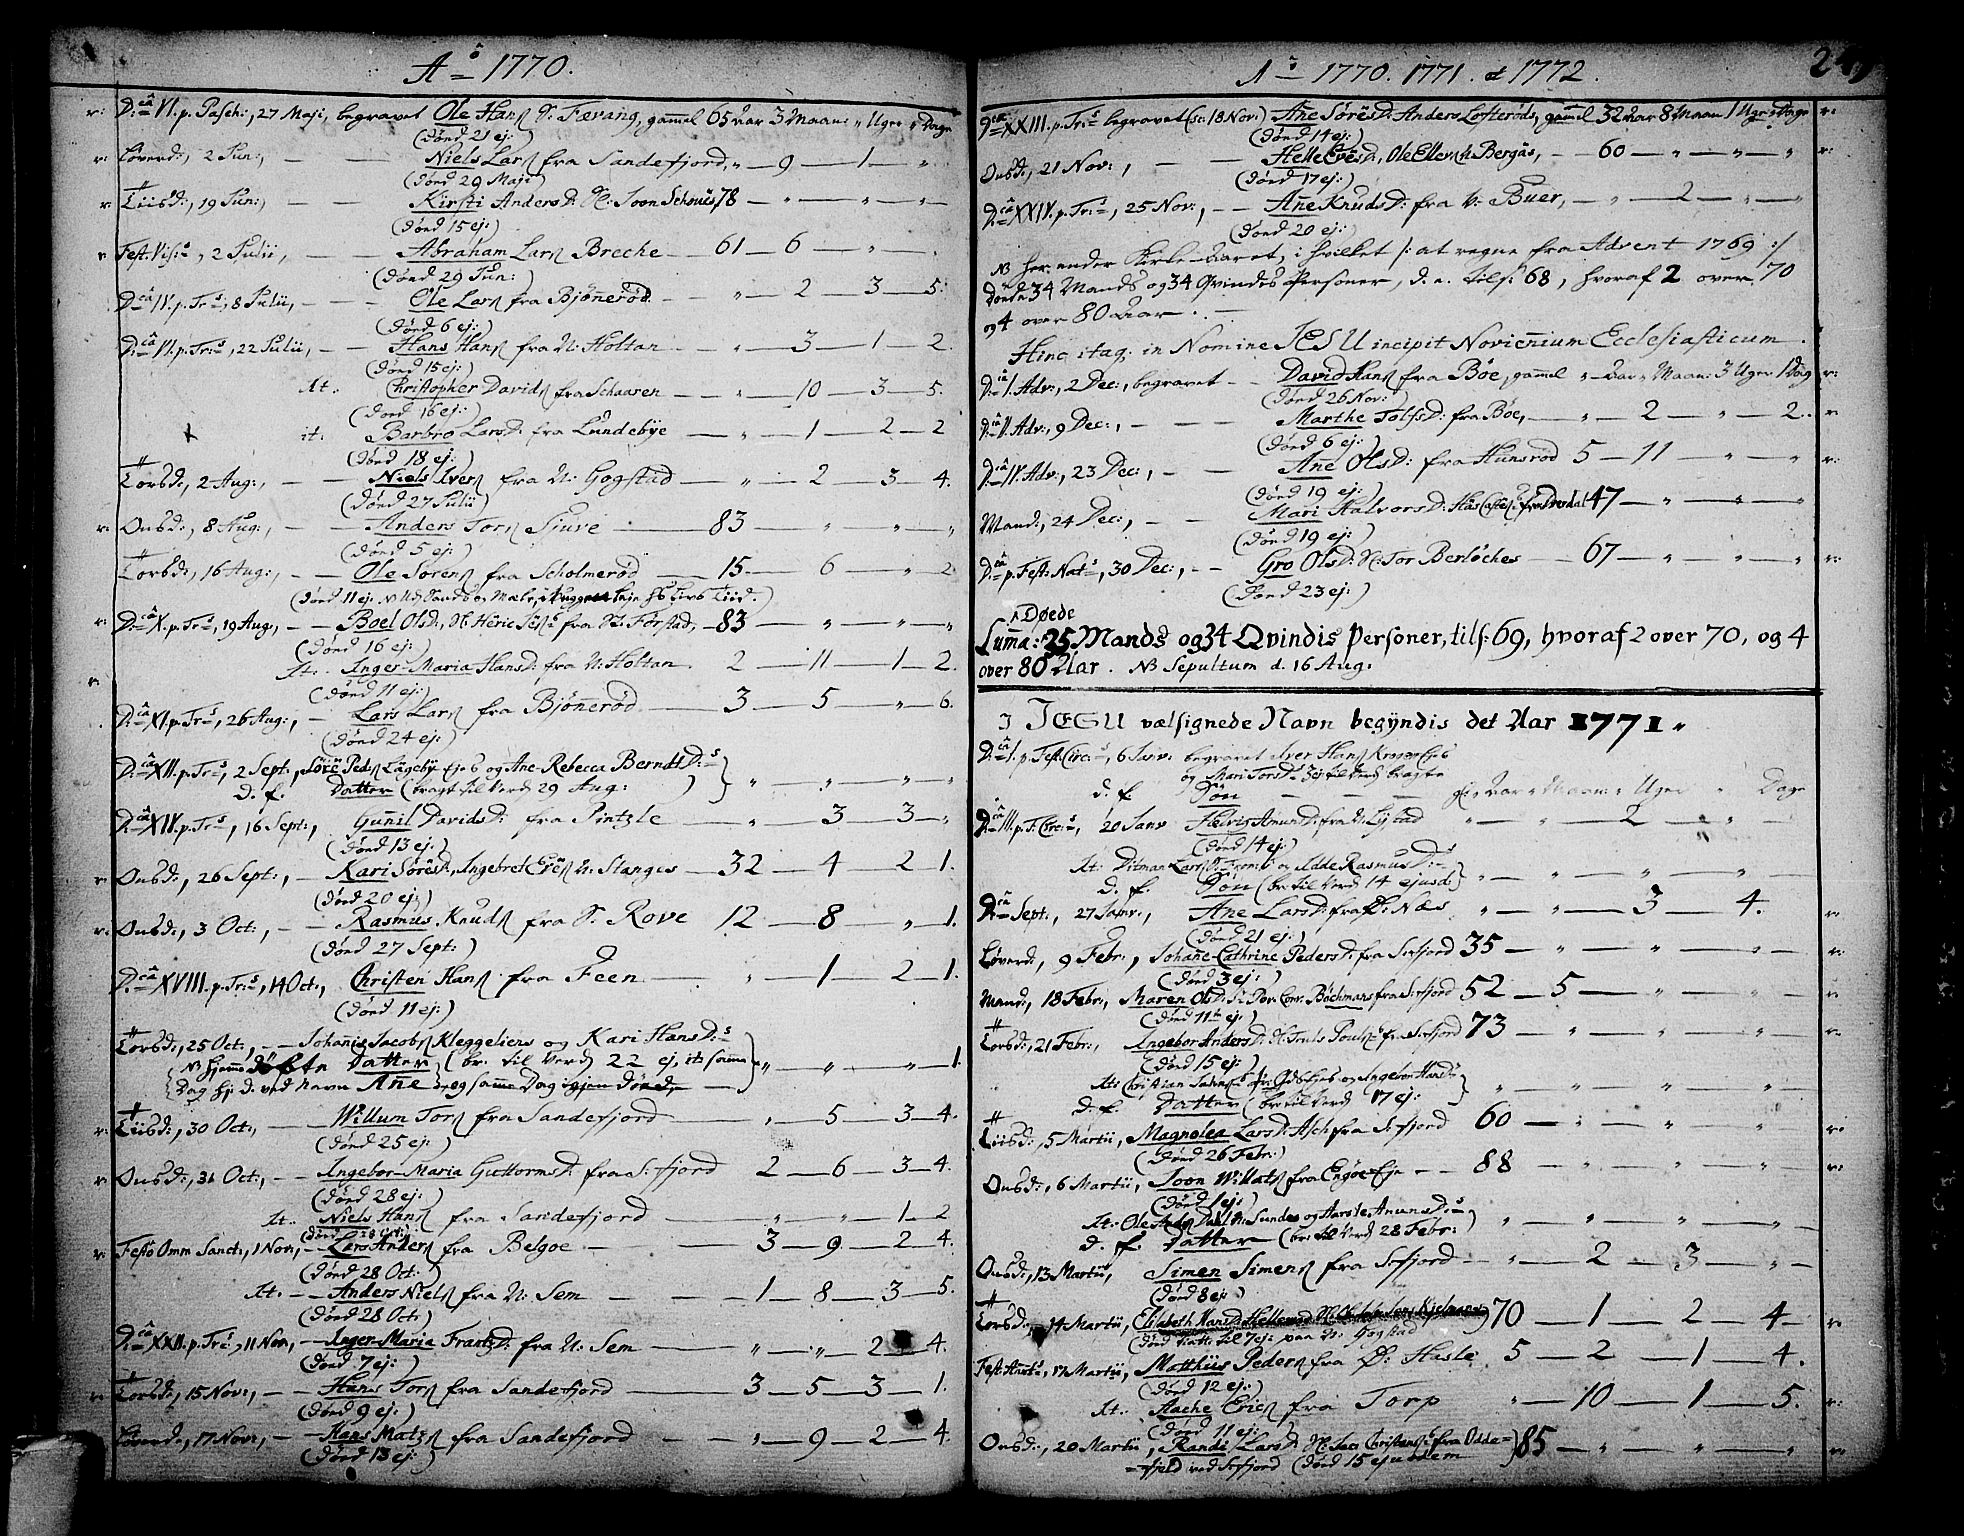 Aô 1770.
r: Dcâ VI. p. Pasch:, 27 Maji, begravet Ole Hans S: Fævang, gammel 65 Aar 3 Maan: „ Uger „ Dage
(Dønd 21 ej:)
r: Løverd:, 2 Jun:, — — Niels Lars fra Sandefjord, „ — 9 — 1 — „
(Dønd 29 Maji)
r: Tiisd:, 19 Jun:, — — Kirsti Anders D: Joon Schouis 78 — „ — „ — „
(Dønd 15 ej:)
r Fest. Vis:, 2 Julii, — — Abraham Lars Breche — 61 — 6 — „ — „
(Dønd 29 Jun:)
Dcâ IV. p. Tr:s, 8 Julii, — — Ole Lars fra Bjønnerød — „ — 2 — 3 — 5.
(Dønd 6 ej:)
Dcâ VI. p. Tr:s, 22 Julii, — — Hans Hans fra N: Holtan — „ — 3 — 1 — 2.
(Dønd 15 ej:)
It. Christopher Davids fra Schaaren — „ — 10 — 3 — 5.
(Dønd 16 ej:)
it: Barbro Lars D: fra Lundebye — „ — 1 — 2 — 2
(Dønd 18 ej:)
Torsd:, 2 Aug:, — — Niels Ivers fra N: Gogstad — „ — 2 — 3 — 4.
(Dønd 27 Julii)
r: Onsd:, 8 Aug:, — — Anders Tors Siuve — 83 — „ — „ — „
(Dønd 5 ej:)
Torsd:, 16 Aug:, — — Ole Sørens fra Scholmerød — 15 — 6 — „ — 2
(Dønd 11 ej.
r: Dcâ X. p. Tr:s, 19 Aug:, — — Boel Ols D:, fra N: Forstad, — 83 — „ — „ — „
(Dønd 16 ej:)
r. It. Inger-Maria Hans D: fra N: Holtan 2 — 11 — 1 — 2.
(Dønd 11 ej:)
Dcâ XI. p. Tr:s, 26 Aug:, — Lars Lars fra Bjønnerød — 3 — 5 — „ — 6.
(Dønd 24 ej:)
Dcâ XII. p. Tr:s, 2 Sept:, Ped: Lageby Ejes og Ane-Rebecca Berndt D:s
d. f. Datter (bragt til Verd 29 Aug:) „ — „ — „ — „
Dcâ XIV. p. Tr:s, 16 Sept:, Gunil Davids D: fra Pintzle — „ — 3 — 3 — „
(Dønd 13 ej:)
r: Onsd:, 26 Sept:, — Kari Sørens D:, Ingebret N: Stanges — 32 — 4 — 2 — 1.
(Dønd 20 ej:)
r: Onsd:, 3 Oct:, — — Rasmus Knuds fra S: Rove 12 — 8 — „ — 1.
(Dønd 27 Sept:)
Dcâ XVIII. p. Tr:s, 14 Oct:, Christen Hans fra Feen — „ — 1 — 2 — 1.
(Dønd 11 ej:)
Torsd:, 25 Oct:, — Johanis Jacobs Kleggeliens og Kari Hans D:s
NB hjemmedøbte Datter (br: til Verd 22 ej, it: samme „ — „ — „ — 1.
Dag hj: d: ved navn Ane og samme Dag igjen Dønd,
r: Tiisd:, 30 Oct:, — Willum Tors fra Sandefjord — „ — 5 — 3 — 4.
(Dønd 25 ej:)
r Onsd:, 31 Oct:, — — Ingebor-Maria Guttorms D: fra S:fjord 2 — 6 — 3 — 4.
(Dønd 28 ej:)
It. Niels Hans fra Sandefjord — „ — „ — 1 — 2
r: Festo Omn Sanct:, 1 Nov:, — Lars Anders fra Belgoe — 3 — 9 — 2 — 4.
(Dønd 28 Oct:)
It. — Anders Niels fra N: Sem — 1 — 8 — 3 — 5.
(Dønd 28 Oct:)
Dcâ XXII. p. Tr:s, 11 Nov:, — Inger-Maria Frantz D: fra N: Sem — „ — „ — 2 — 4.
(Dønd 7 ej:)
r: Torsd:, 15 Nov:, — — Hans Tors fra Sandefjord — 3 — 5 — 3 — 1.
(Dønd 9 ej:)
Løverd:, 17 Nov:, — Hans Matz fra Sandefjord — „ — 9 — 2 — 4.
(Dønd 13 ej:)
Aô 1770. 1771. et 1772.
Dcâ XXIII. p. Tr:s begravet (sc: 18 Nov:) Ane Sørens D: Anders Lofterøds, gammel 32 Aar 8 Maan 1 Uge „ Dage r:
(Dønd 14 ej:)
Onsd:, 21 Nov:, — — Helle D:, Ole Bergås, — 60 — „ — „ — „ r:
(Dønd 17 ej:)
Dcâ XXIV. p. Tr:s, 25 Nov:, — — Ane Knuds D: fra V: Buer, — „ — 2 — „ — „
(Dønd 20 ej:)
NB her ender Kirke-Aaret, i hvilket /: at regne fra Advent 1769 :/
Døde 34 Mands og 34 Qvindis Personer, d. e. tils: 68, hvoraf 2 over 70
og 4 over 80 Aar.
Hinc itaq: in Nomine JESU incipit Novicnium Ecclesiasticum.
Dcâ I. Adv:, 2 Dec:, begravet — David Hans fra Bøe, gammel „ Aar „ Maan: 3 Uger 1 Dag r:
(Dønd 26 Nov:)
Dcâ II. Adv:, 9 Dec:, — Marthe Tolfs D: fra Bøe, — „ — 2 — „ — 2. r:
(Dønd 6 ej:)
Dcâ IV. Adv:, 23 Dec:, — — Ane Ols D: fra Hunsrød 5 — 11 — „ — „ r:
(Dønd 19 ej:)
Mand:, 24 Dec:, — — Mari Halvors D: 47 — „ — „ — „
(Dønd 19 ej:)
Dcâ p. Fest: Nat:s, 30 Dec:, — — Gro Ols D: Tor Berløches — 67 — „ — „ — „ r:
(Dønd 23 ej:)
Døede
Suma: 35 Mands og 34 Qvindis Personer, tils: 69, hvoraf 2 over 70, og 4
over 80 Aar. NB Sepultum d. 16 Aug:
I JESU vælsignede Navn begyndis det Aar 1771.
Dcâ I. p. Fest. Circ:s, 6 Janv: begravet Iver Hans Ejes
og Mari Tors D: 3 ej: til Verd: bragte
d. f. Søn — — — gl: „ Aar „ Maan: „ Uger „ Dage
Dcâ III. p. F. Circ:s, 20 Janv Helvig Amun D: fra N: Lystad „ — „ — 2 — „
(Dønd 14 ej:)
It: Ditman Lars og Adde Rasmus D:s
d. f. Søn (br: til Verd: 14 ejusd:) „ — „ — „ — „
Dcâ Sept:, 27 Janv:, Ane Lars D: fra Ø: Næs „ — „ — 3 — 4. r:
(Dønd 21 ej:)
Løverd:, 9 Febr:, Johane-Cathrine Peders D: fra S:fjord 35 — „ — „ — „ r:
(Dønd 3 ej:)
Mand:, 18 Febr:, Maren Ols D: Bochmans fra S:fjord 52 — 5 — „ — „ r:
(Dønd 11te ej:)
Torsd:, 21 Febr:, Ingebor Anders D: Truls Pouls fra S:fjord 73 — „ — „ — „ r:
(Dønd 15 ej:)
It: Christian og Ingebor Hans D:s
d. f. Datter (br: til Verd: 17 ej: „ — „ — „ — „
Tiisd:, 5 Martii, Magnolea Lars D: Asch fra S:fjord 60 — „ — „ — „ r:
(Dønd 26 Febr:)
Onsd:, 6 Martii, Joon Willats fra Engøe Eje — 88 — „ — „ — „ r:
(Dønd 1 ej:)
It: Ole Dahl N: Sundes og Aarste Amuns D:s
d. f. Datter (br: til Verd: 28 Febr: „ — „ — „ — „
Onsd:, 13 Martii, Simen Simens fra S:fjord — „ — 2 — 3 — „
(Dønd 8 ej:)
Torsd:, 14 Martii, Elisabeth Hans D: 70 — 1 — 2 — 4 — r:
7 ej: paa N: Gogstad
Fest: Anut:s, 17 Martii, Matthiis Peders fra Ø: Hasle 5 — 2 — 1 — 4.
(Dønd 12 ej:)
It: Aache Erics fra Torp „ — 10 — 1 — 5. r:
(Dønd 11 ej:)
Onsd:, 20 Martii, Randi Lars D: Christens fra Odde= 85 — „ — „ — „ r:
=fjeld ved S:fjord (Dønd 15 ejusdem